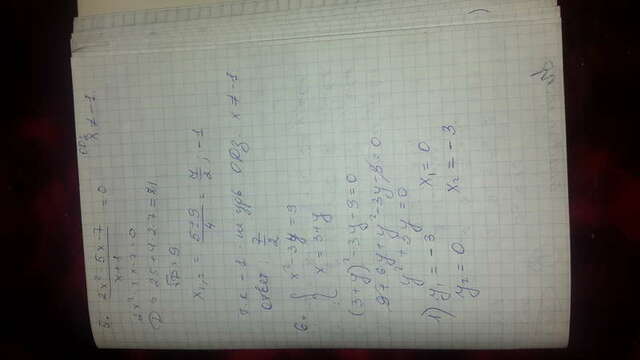 5. (2x² - 5x - 7)/(x+1) = 0   ОДЗ x ≠ -1
2x² - 5x - 7 = 0
D = 25 + 4·2·7 = 81
√D = 9
x₁,₂ = (5±9)/4 = 7/2; -1
т.к - 1 не удв ОДЗ. x ≠ -1
ответ 7/2
6. { x² - 3y = 9
{ x = 3 + y
(3+y)² - 3y - 9 = 0
9 + 6y + y² - 3y - 9 = 0
y² + 3y = 0
y₁ = -3   x₁ = 0
y₂ = 0   x₂ = -3